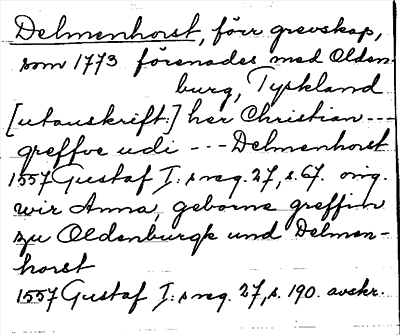 Delmenhorst, förr grevskap,
som 1773 förenades med Olden-
burg, Tyskland
[utanskrift:] her Christian ---
greffve udi --- Delmenhorst
1557 Gustaf I:s reg. 27, s. 67. orig.
wir Anna, geborne greffin
zu Oldenburgk und Delmen-
horst
1557 Gustaf I:s reg. 27, s. 190. avskr.